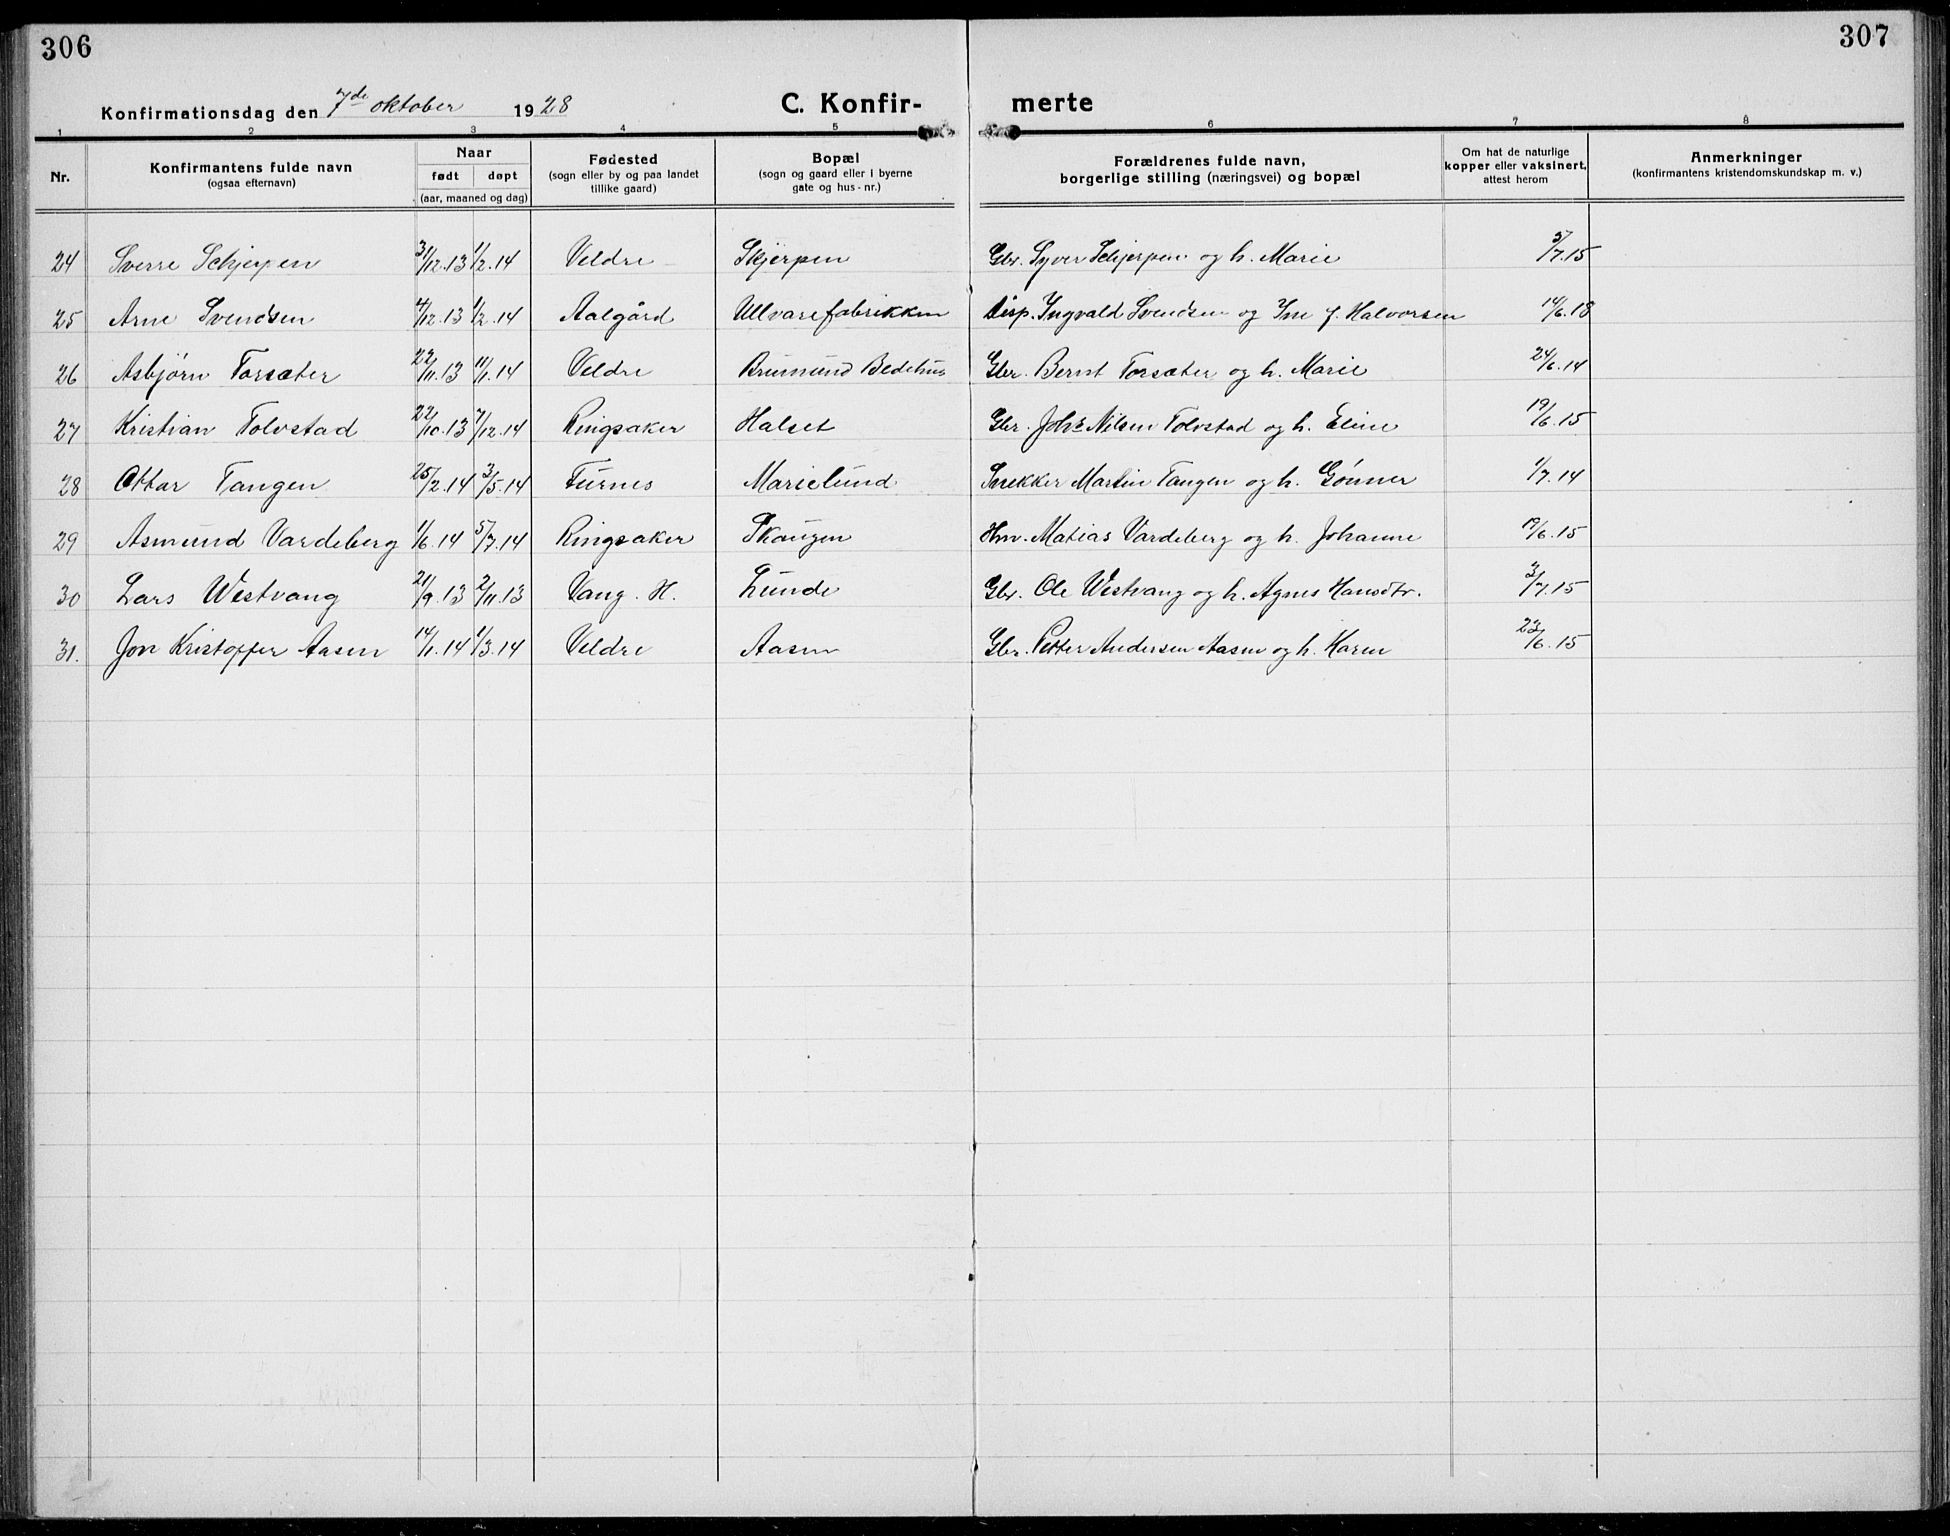 306
307
Konfirmationsdag den 7de oktober 1928
C. Konfir-
merte
1 2 3 4 5 6 7 8
Nr.
Konfirmantens fulde navn
(ogsaa efternavn)
Naar
født døpt
(aar, maaned og dag)
Fødested
(sogn eller by og paa landet
tillike gaard)
Bopæl
(sogn og gaard eller i byerne
gate og hus-nr.)
Forældrenes fulde navn,
borgerlige stilling (næringsvei) og bopæl
Om hat de naturlige
kopper eller vaksinert,
attest herom
Anmerkninger
(konfirmantens kristendomskundskap m. v.)
24 Sverre Schjerpen 3/12.13 1/2.14 Veldre Skjerpen Gbr. Syver Schjerpen og h. Marie 5/7.15
25 Arne Svendsen 4/12.13 1/2.14 Aalgård Ullvarefabrikken Disp. Ingvald Svendsen og Ine f. Halvorsen 14/6.18
26 Asbjørn Torsæter 22/11.13 11/1.14 Veldre Brumund Bedehus Gbr. Bernt Torsæter og h. Marie 24/6.14
27 Kristian Tolvstad 22/10.13 7/12.14 Ringsaker Halset Gbr. Johs Nilsen Tolvstad og h. Eline 19/6.15
28 Ottar Tangen 25/2.14 3/5.14 Furnes Marielund Snekker Martin Tangen og h. Gønner 1/7.14
29 Asmund Vardeberg 1/6.14 5/7.14 Ringsaker Skaugen Hm. Matias Vardeberg og h. Johanne 19/6.15
30 Lars Westvang 21/9.13 2/11.13 Vang. H. Lunde Gbr. Ole Westvang og h. Agnes Hansdtr. 3/7.15
31. Jon Kristoffer Aasen 14/1.14 1/3.14 Veldre Aasen Gbr. Petter Andersen Aasen og h. Karen 23/6.15